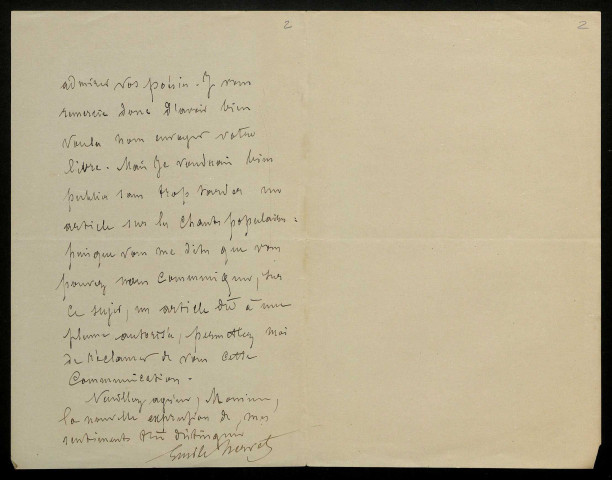 2
2
admirer vos poésies. Je vous
remercie donc d'avoir bien
voulu nous envoyer votre
livre. Mais je voudrais bien
publier sans trop tarder un
article sur les Chants populaires :
puisque vous me dites que vous
pouvez nous communiquer, sur
ce sujet, un article dû à une
plume autorisée, permettez moi
de réclamer de vous cette
Communication.
Veuillez agréer, Monsieur,
la nouvelle expression de mes
sentiments très distingués
Emile Hervet